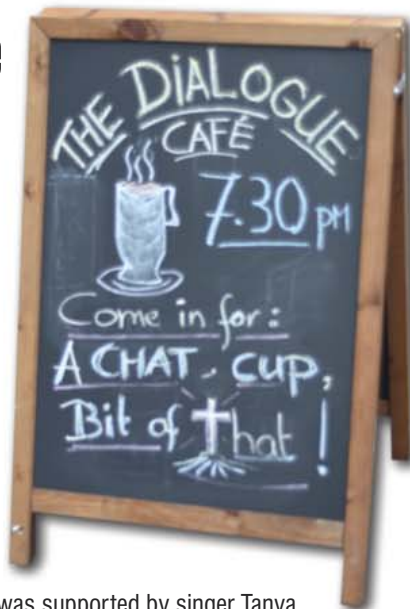 THE DIALOGUE
CAFÉ
7.30 pm
Come in for:
A CHAT, CUP,
Bit of that!
was supported by singer Tanya